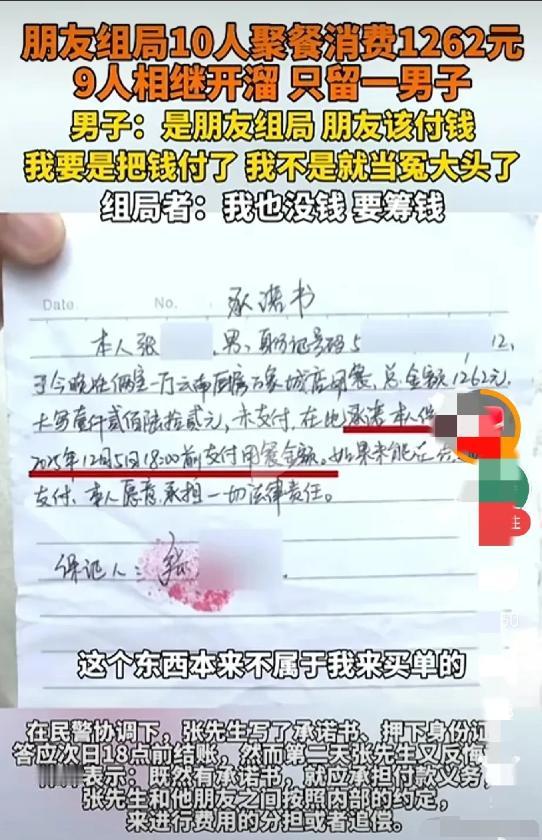 朋友组局10人聚餐消费1262元
9人相继开溜 只留一男子
男子：是朋友组局 朋友该付钱
我要是把钱付了 我不是就当冤大头了
组局者：我也没钱 要筹钱
Date. No.
承诺书
本人张 ，男，身份证号码5 12，
于今晚在俩室一厅云南厨房万象城店用餐，总金额1262元，
大写壹仟贰佰陆拾贰元，未支付，在此承诺本人
2025年12月5日18:00前支付用餐金额。如果未能在
支付，本人愿意承担一切法律责任。
保证人：张
这个东西本来不属于我来买单的
在民警协调下，张先生写了承诺书、押下身份证
答应次日18点前结账，然而第二天张先生又反悔
表示：既然有承诺书，就应承担付款义务，
张先生和他朋友之间按照内部的约定，
来进行费用的分担或者追偿。